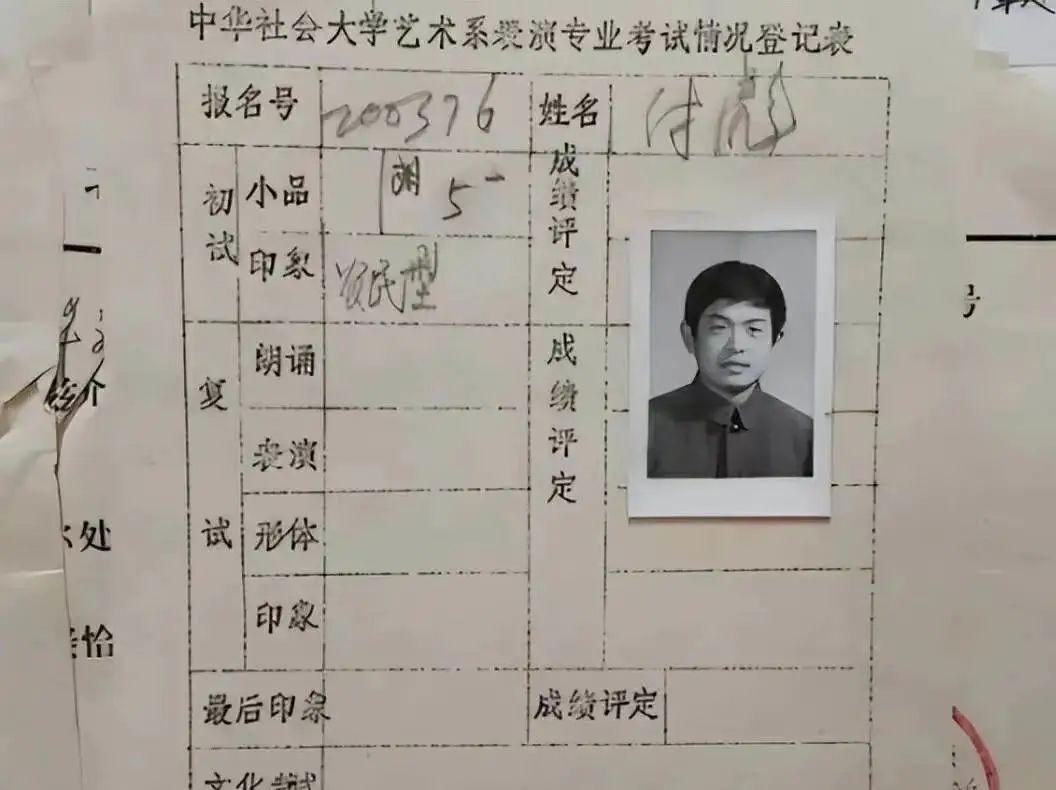 中华社会大学艺术系表演专业考试情况登记表
报名号 200376 姓名 付彪
初试 小品 胡 5- 成绩评定
印象 农民型
复试 朗诵 成绩评定
表演
形体
印象
最后印象 成绩评定
文化考试
号
介
处
恰